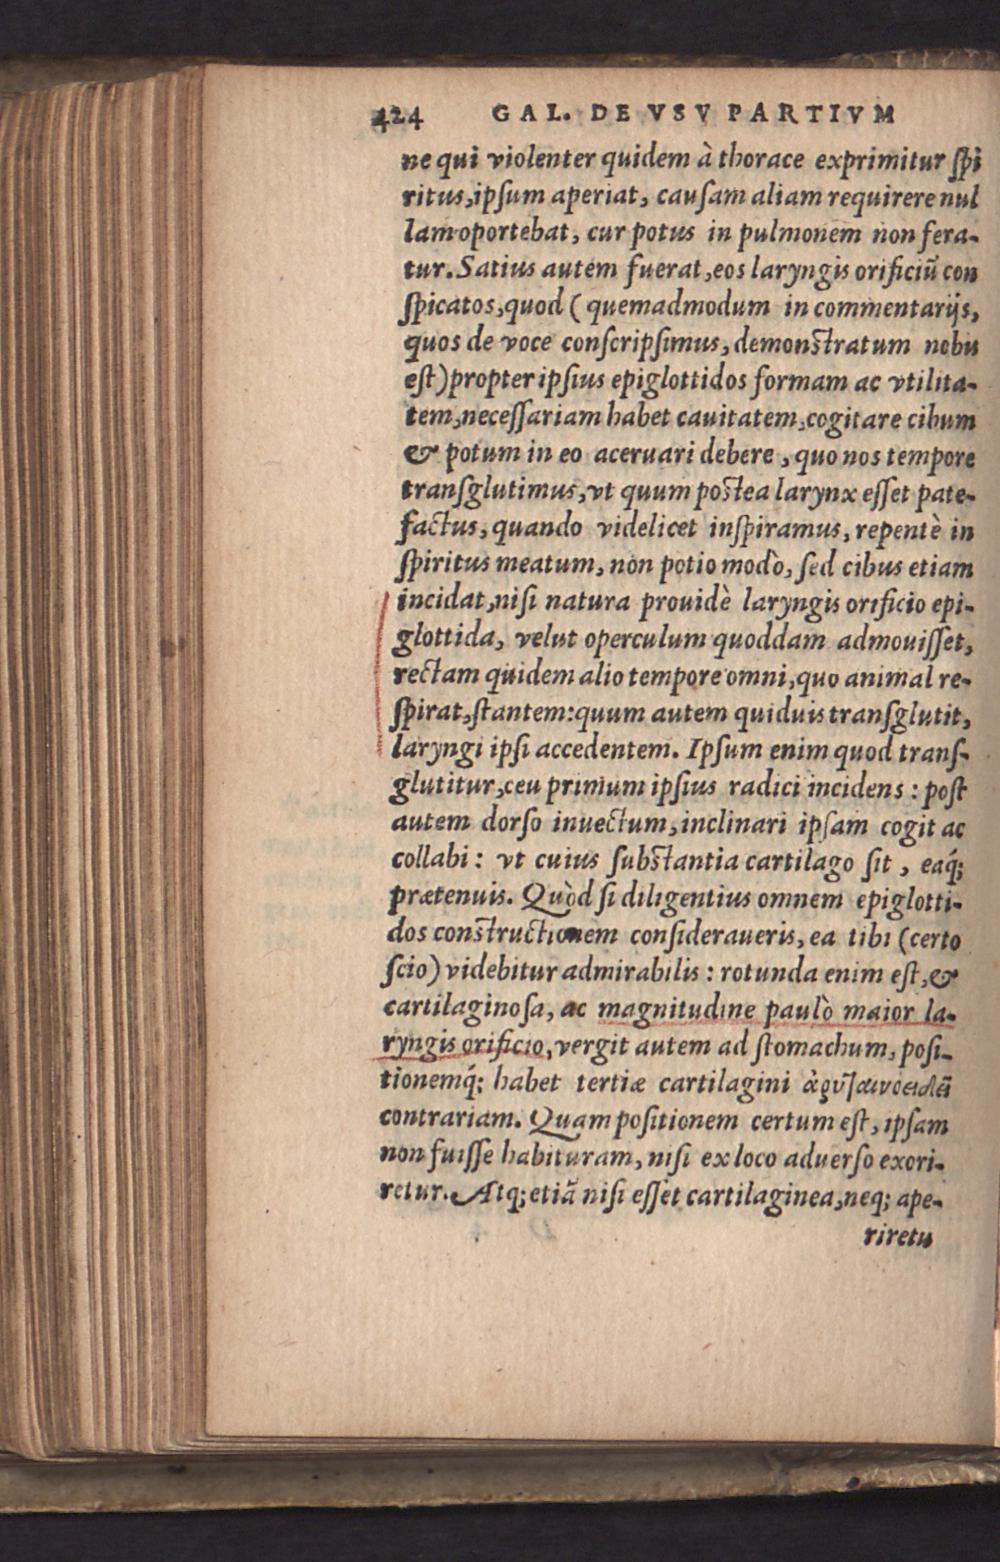 424 GAL. DE VSV PARTIVM
ne qui violenter quidem à thorace exprimitur ſpi
ritus, ipſum aperiat, cauſam aliam requirere nul
lam oportebat, cur potus in pulmonem non fera-
tur. Satius autem fuerat, eos laryngis orificiũ con
ſpicatos, quod (quemadmodum in commentarijs,
quos de voce conſcripſimus, demonſtratum nobis
eſt) propter ipſius epiglottidos formam ac vtilita-
tem, neceſſariam habet cauitatem, cogitare cibum
& potum in eo aceruari debere, quo nos tempore
tranſglutimus, vt quum poſtea larynx eſſet pate-
factus, quando videlicet inſpiramus, repentè in
ſpiritus meatum, non potio modò, ſed cibus etiam
incidat, niſi natura prouidè laryngis orificio epi-
glottida, velut operculum quoddam admouiſſet,
rectam quidem alio tempore omni, quo animal re-
ſpirat, ſtantem: quum autem quiduis tranſglutit,
laryngi ipſi accedentem. Ipſum enim quod tranſ-
glutitur, ceu primum ipſius radici incidens: poſt
autem dorſo inuectum, inclinari ipſam cogit ac
collabi: vt cuius ſubſtantia cartilago ſit, eaq́;
prætenuis. Quòd ſi diligentius omnem epiglotti-
dos conſtructionem conſideraueris, ea tibi (certo
ſcio) videbitur admirabilis: rotunda enim eſt, &
cartilaginoſa, ac magnitudine paulò maior la-
ryngis orificio, vergit autem ad ſtomachum, poſi-
tionemq́; habet tertiæ cartilagini ἀρυταινοειδεῖ
contrariam. Quam poſitionem certum eſt, ipſam
non fuiſſe habituram, niſi ex loco aduerſo exori-
retur. Atq; etiã niſi eſſet cartilaginea, neq; ape-
riretu